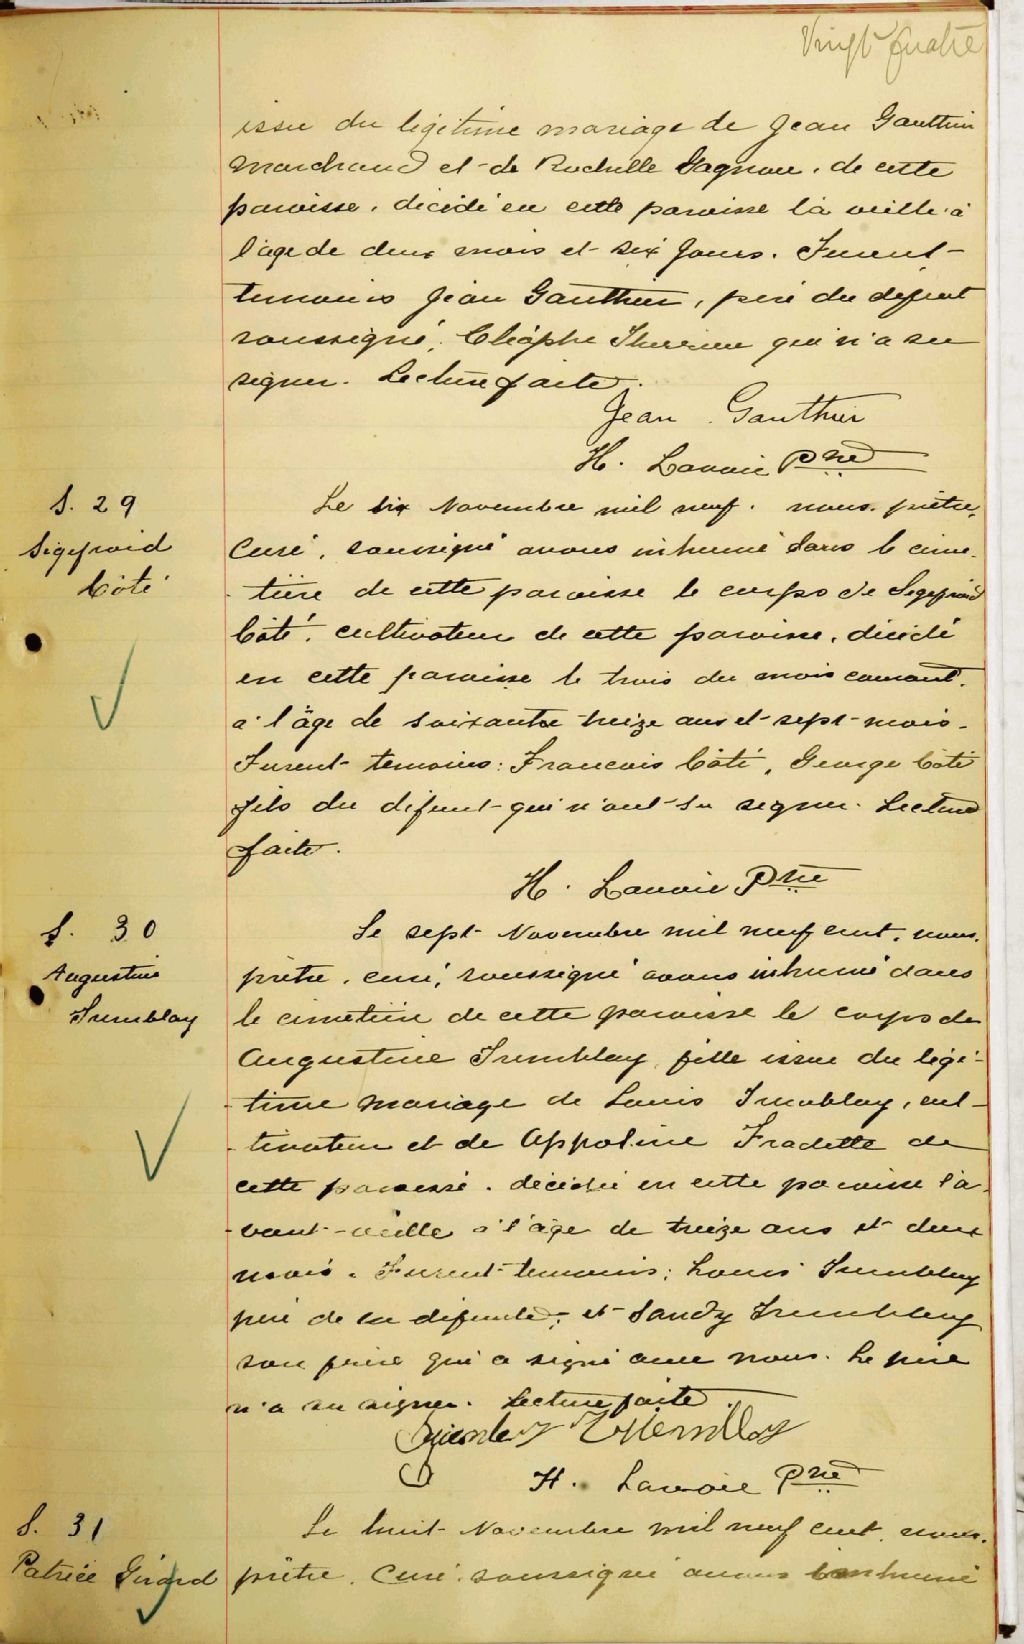 Vingt quatre
issu du légitime mariage de Jean Gauthier
marchand et de Rachelle Gagnon, de cette
paroisse, décédé en cette paroisse la veille à
l'age de deux mois et six jours. Furent
temoins Jean Gauthier, père du defunt
soussigné, Cléophe qui n'a su
signer. Lecture faite.
Jean Gauthier
H. Lavoie Ptre
S. 29
Sigefroid
Côté
Le six Novembre mil neuf. nous, prêtre,
Curé, soussigné avons inhumé dans le cime-
-tière de cette paroisse le corps de Sigefroid
Côté, cultivateur de cette paroisse, décédé
en cette paroisse le trois du mois courant,
a l'âge de soixante treize ans et sept mois.
Furent temoins: Francois Côté, George Côté
fils du défunt qui n'ont su signer. Lecture
faite.
H. Lavoie Ptre
S. 30
Augustine
Tremblay
Le sept Novembre mil neuf cent, nous,
prêtre, curé, soussigné avons inhumé dans
le cimetière de cette paroisse le corps de
Augustine Tremblay, fille issue du légi-
-time mariage de Louis Tremblay, cul-
-tivateur et de Appoline Fradette de
cette paroisse, décédée en cette paroisse l'a-
-vant-veille à l'âge de treize ans et deux
mois. Furent temoins: Louis Tremblay
père de la défunte, et Sandy Tremblay
son frère qui a signé avec nous. Le père
n'a su signer. Lecture faite.
H. Lavoie Ptre
S. 31
Patrice Girard
Le huit Novembre mil neuf cent, nous,
prêtre, Curé, soussigné avons inhumé